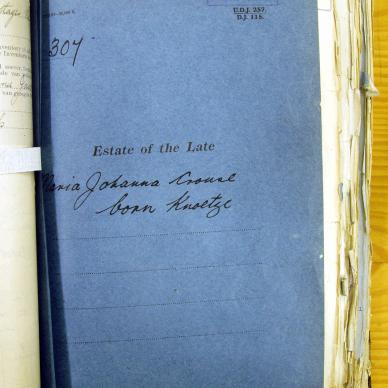 U.D.J. 257.
D.J. 118.
307
Estate of the Late
Maria Johanna Crouse
born Knoetze